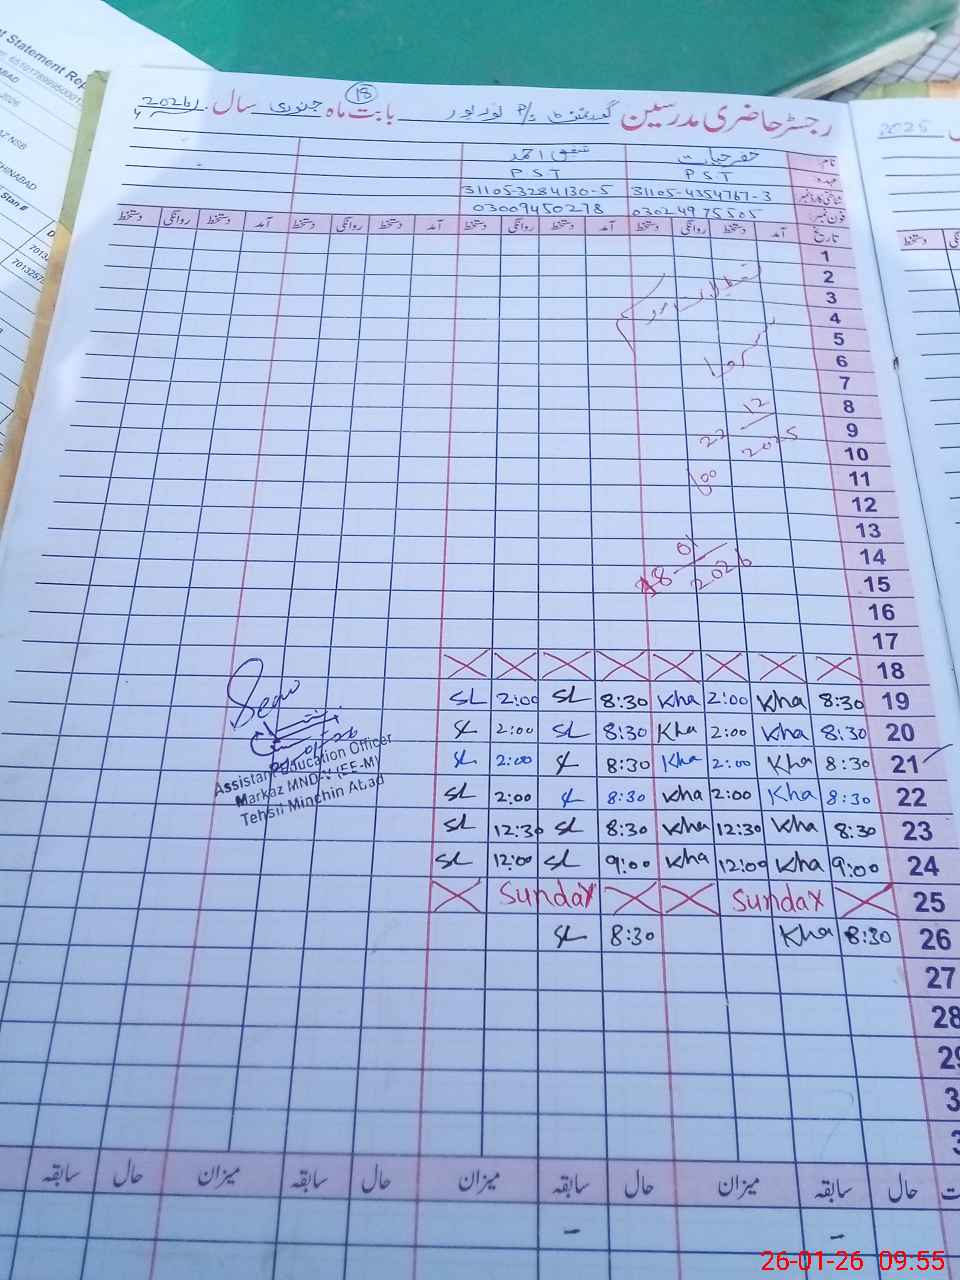 رجسٹر حاضری مدرسین گورنمنٹ P/S بابت ماہ جنوری سال 2026
18
نام
عہدہ
شناختی کارڈ نمبر
فون نمبر
خضر حیات
شفیق احمد
PST PST
31105-4354767-3 31105-3284130-5
03024975505 03009450278
تاریخ آمد دستخط روانگی دستخط آمد دستخط روانگی دستخط آمد دستخط روانگی دستخط آمد دستخط روانگی دستخط
1
2
3
4
5
6
7
8
9
10
11
12
13
14
15
16
17
تعطیلات موسم سرما
22 12 2025
18 01 2026
18
19 8:30 Kha 2:00 Kha 8:30 SL 2:00 SL
20 8:30 Kha 2:00 Kha 8:30 SL 2:00 SL
21 8:30 Kha 2:00 Kha 8:30 SL 2:00 SL
22 8:30 Kha 2:00 Kha 8:30 SL 2:00 SL
23 8:30 Kha 12:30 Kha 8:30 SL 12:30 SL
24 9:00 Kha 12:00 Kha 9:00 SL 12:00 SL
25 Sunday Sunday
26 8:30 Kha 8:30 SL
27
28
Assistant Education Officer
Markaz (EE-M)
Tehsil Minchin Abad
حال سابقہ میزان حال سابقہ میزان حال سابقہ میزان حال سابقہ
- -
t Statement Rep
2026
Stan #
2025
دستخط
26-01-26 09.55